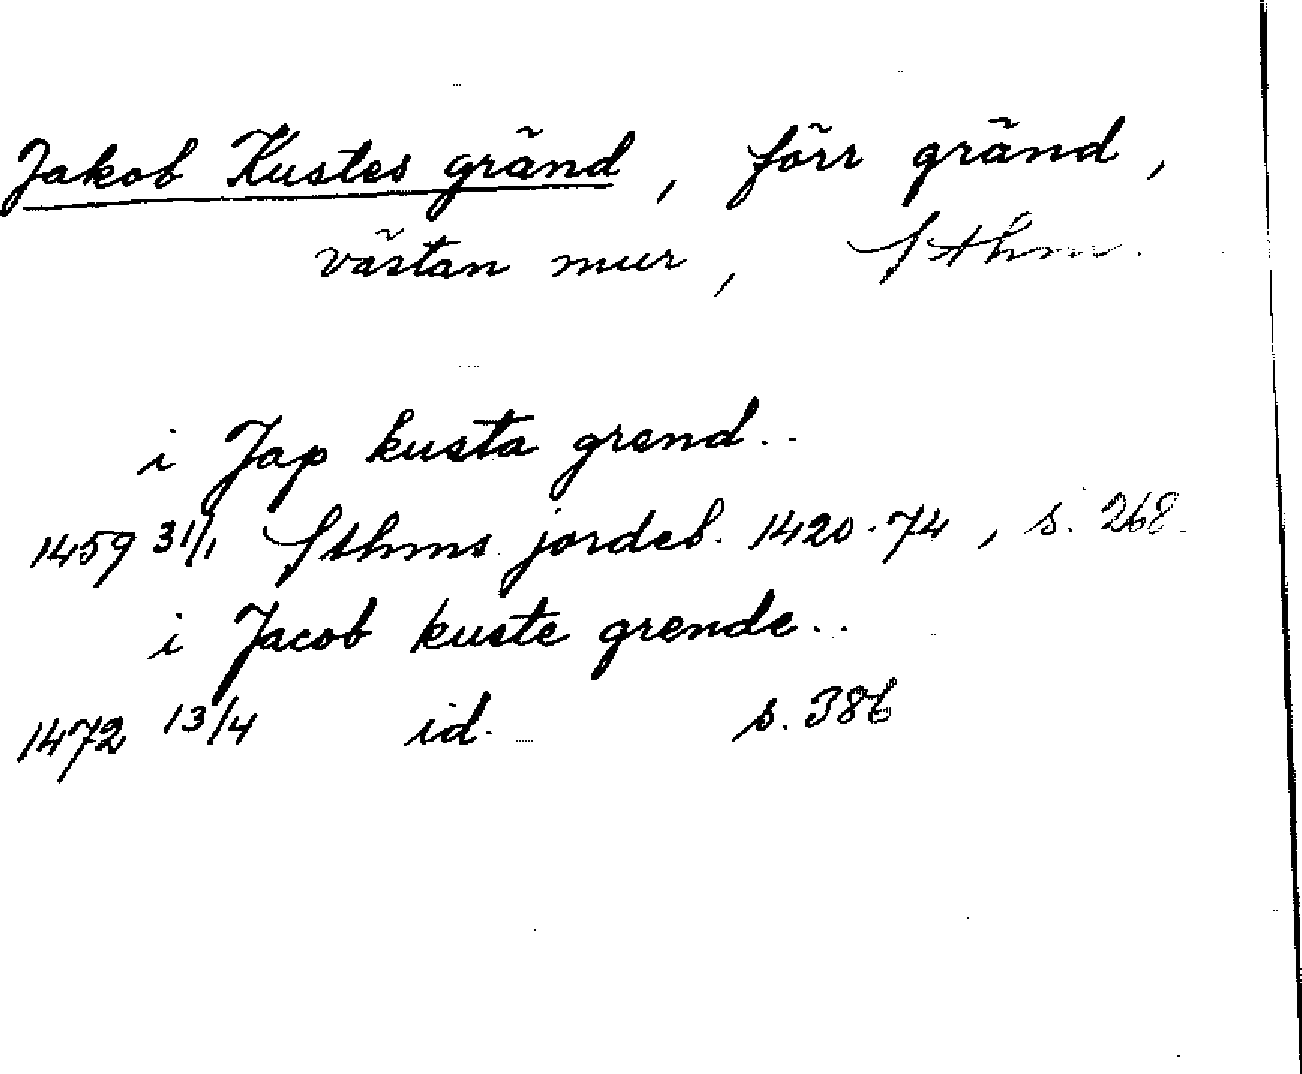 Jakob Kustes gränd, förr gränd,
västan mur, Sthm.
i Jap kusta grend..
1459 31/1 Sthms jordeb. 1420-74, s. 268.
i Jacob kuste grende..
1472 13/4 id. s. 386